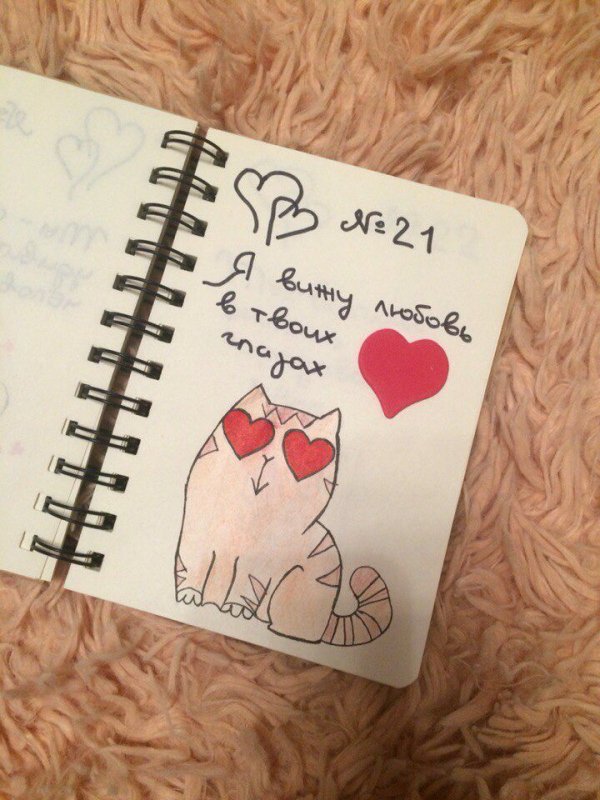 №21
Я вижу любовь
в твоих
глазах